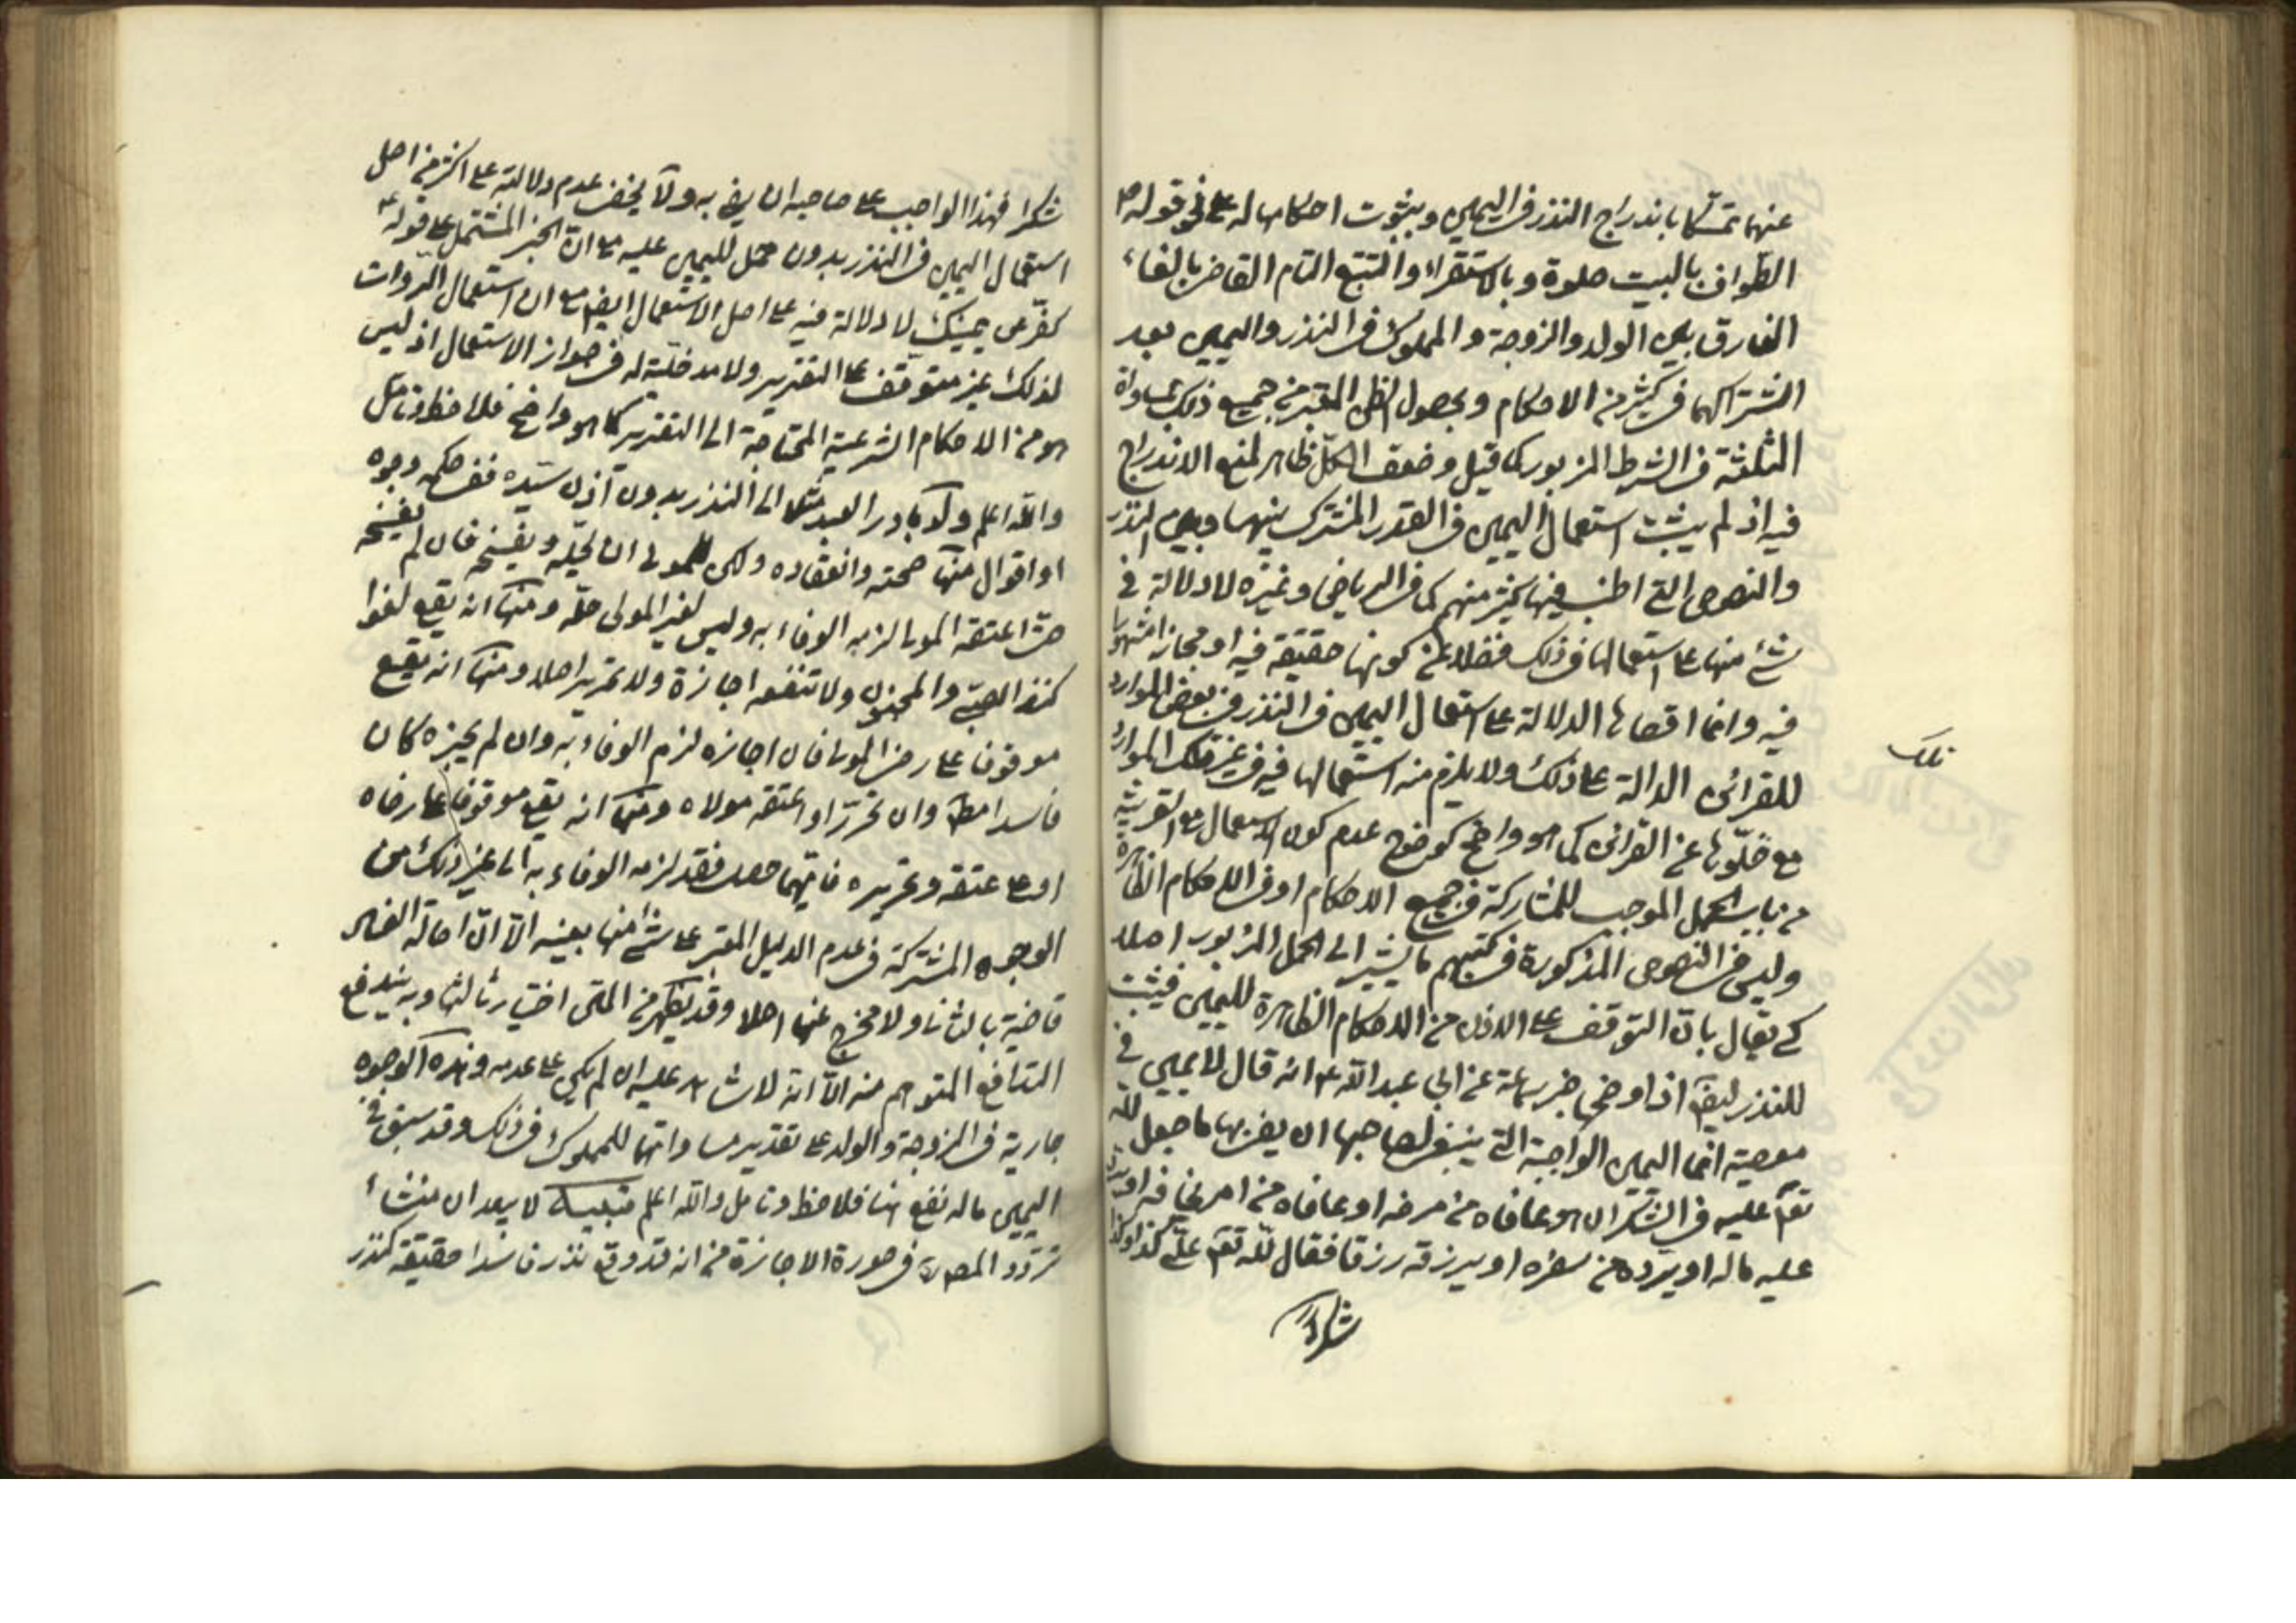 عنهما تمسكا باندراج النذر فى اليمين وبثبوت احكامها له على نحو قوله ص
الطواف بالبيت صلوة وبالاستقراء والتتبع التام القاضى بالغاء
الفارق بين الولد والزوجة والمملوك فى النذر واليمين بعد
اشتراكهما فى كثير من الاحكام وبحصول الظن المعتبر من جميع ذلك بمساواة
الثلثة فى الشرط المزبور كما قيل وضعف الكل ظاهر لمنع الاندراج
فيه اذ لم يثبت استعمال اليمين فى القدر المشترك بينهما وبين النذر
والنصوص التى اطنب فيها كثير منهم كما فى الرياض وغيره لا دلالة فى
شئ منها على استعمالها فى ذلك فضلا عن كونها حقيقة فيه او مجازا مشهورا
فيه وانما اقصاها الدلالة على استعمال اليمين فى النذر فى بعض الموارد
للقرائن الدالة على ذلك ولا يلزم منه استعمالها فيه فى غير تلك الموارد
تلك
مع خلوها عن القرائن كما هو واضح كوضوح عدم كون الاستعمال مع القرينة
من باب الحمل الموجب للمشاركة فى جميع الاحكام او فى الاحكام الظاهرة
وليس فى النصوص المذكورة فى كتبهم ما يشير الى الحمل المزبور اصلا
كى يقال بان التوقف على الاذن من الاحكام الظاهرة لليمين فيثبت
للنذر ايضا اذ اوضحها خبر سماعة عن ابى عبد الله ع انه قال لا يمين فى
معصية انما اليمين الواجبة التى ينبغى لصاحبها ان يفى بها ما جعل لله
تعم عليه فى الشكر ان هو عافاه من مرضه او عافاه من امر يخافه او رد
عليه ماله او يرده من سفره او يرزقه رزقا فقال لله تعم على كذا وكذا
شكرا
شكرا فهذا الواجب على صاحبه ان يفى به ولا يخفى عدم دلالته على اكثر من اصل
استعمال اليمين فى النذر بدون حمل لليمين عليه مع ان الخبر المشتمل على قوله ع
كفر عن يمينك لا دلالة فيه على اصل الاستعمال ايضا مع ان استعمال الروات
لذلك غير متوقف على التقرير ولا مدخلية له فى جواز الاستعمال اذ ليس
هو من الاحكام الشرعية المحتاجة الى التقرير كما هو واضح فلاحظ وتامل
والله اعلم ولو بادر العبد مثلا الى النذر بدون اذن سيده ففى حكمه وجوه
او اقوال منها صحته وانعقاده ولكن للمولى ان يحله ويفسخه فان لم يفسخه
حتى اعتقه المولى لزمه الوفاء به وليس لغير المولى حله ومنها انه يقع لغوا
كنذر الصبى والمجنون ولا تنفعه اجازة ولا تحرير اصلا ومنها انه يقع
موقوفا على رضى المولى فان اجازه لزم الوفاء به وان لم يجزه كان
فاسدا مطلقا وان تحرر او اعتقه مولاه ومنها انه يقع موقوفا على رضاه
او على عتقه وتحريره فايهما حصل فقد لزمه الوفاء به الى غير ذلك من
الوجوه المشتركة فى عدم الدليل المعتبر على شئ منها بعينه الا ان اصالة الفساد
قاضية بالثانى ولا مخرج عنها اصلا وقد يظهر من المتن اختيار ثالثها وبه يندفع
التدافع المتوهم منه الا انه لا شاهد عليه ان لم يكن على عدمه وهذه الوجوه
جارية فى الزوجة والولد على تقدير مساواتهما للمملوك فى ذلك وقد سبق فى
اليمين ماله نفع هنا فلاحظ وتامل والله اعلم تنبيه لا يبعد ان منشأ
تردد المصنف فى صورة الاجازة من انه قد وقع نذره فاسدا حقيقة كنذر